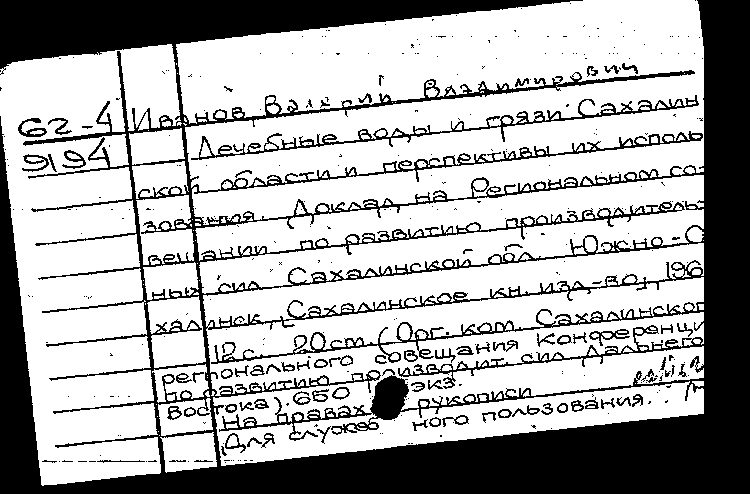 62-4 Иванов, Валерий Владимирович
9194
Лечебные воды и грязи Сахалин
ской области и перспективы их исполь
зования. Доклад на Региональном со-
вещании по развитию производитель-
ных сил Сахалинской обл. Южно-С
халинск, Сахалинское кн. изд-во, 196
12 с. 20 см. (Орг. ком. Сахалинског
регионального совещания Конференци
по развитию производит. сил Дальнего
Востока). 650 экз.
На правах рукописи
Для служеб ного пользования.